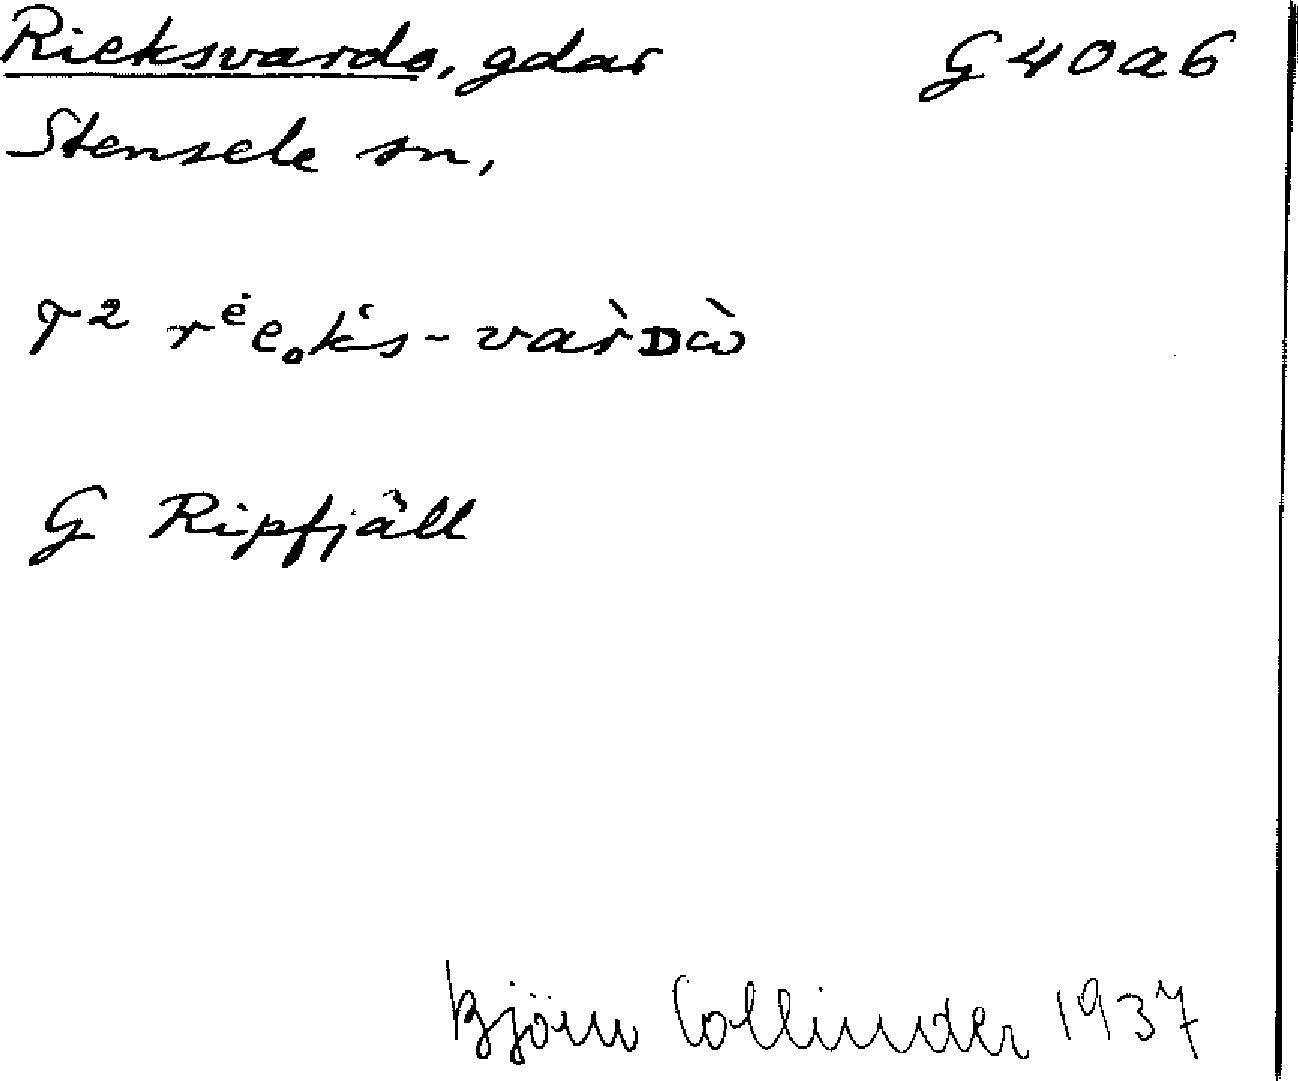 Rieksvardo, gdar G 40 a 6
Stensele sn,
G Ripfjäll
Björn Collinder 1937